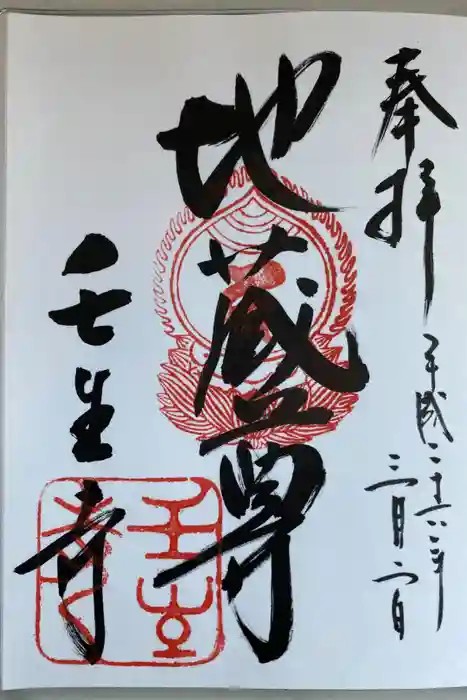 奉拝
平成二十六年
三月二日
地蔵尊
壬生寺